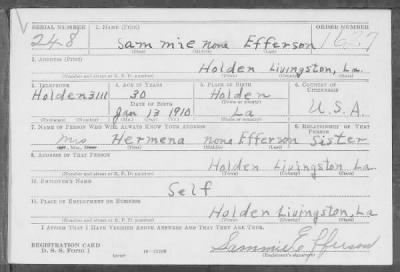 SERIAL NUMBER 1. NAME (Print) ORDER NUMBER
248 Sammie none Efferson 1627
(First) (Middle) (Last)
2. ADDRESS (Print)
Holden Livingston, La.
(Number and street or R. F. D. number) (Town) (County) (State)
3. TELEPHONE 4. AGE IN YEARS 5. PLACE OF BIRTH 6. COUNTRY OF CITIZENSHIP
Holden 3111 30 Holden
DATE OF BIRTH (Town or county)
Jan 13 1910 La U.S.A.
(Exchange) (No.) (Mo.) (Day) (Yr.) (State or country)
7. NAME OF PERSON WHO WILL ALWAYS KNOW YOUR ADDRESS 8. RELATIONSHIP OF THAT PERSON
Miss Hermena none Efferson Sister
(Mr., Mrs., Miss) (First) (Middle) (Last)
9. ADDRESS OF THAT PERSON
Holden Livingston La
(Number and street or R. F. D. number) (Town) (County) (State)
10. EMPLOYER'S NAME
Self
11. PLACE OF EMPLOYMENT OR BUSINESS
Holden Livingston, La
(Number and street or R. F. D. number) (Town) (County) (State)
I AFFIRM THAT I HAVE VERIFIED ABOVE ANSWERS AND THAT THEY ARE TRUE.
REGISTRATION CARD
D. S. S. Form 1
Sammie Efferson
(Registrant's signature)